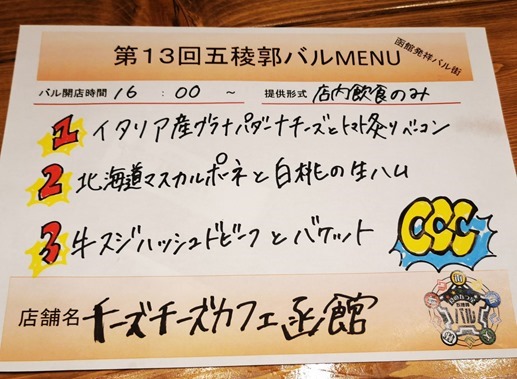 第13回五稜郭バルMENU
函館発祥バル街
バル開店時間 16:00~ 提供形式 店内飲食のみ
1 イタリア産グラナパダーナチーズとトマト炙りベーコン
2 北海道マスカルポーネと白桃の生ハム
3 牛スジハッシュドビーフとバケット
CCC
店舗名 チーズチーズカフェ函館
バル